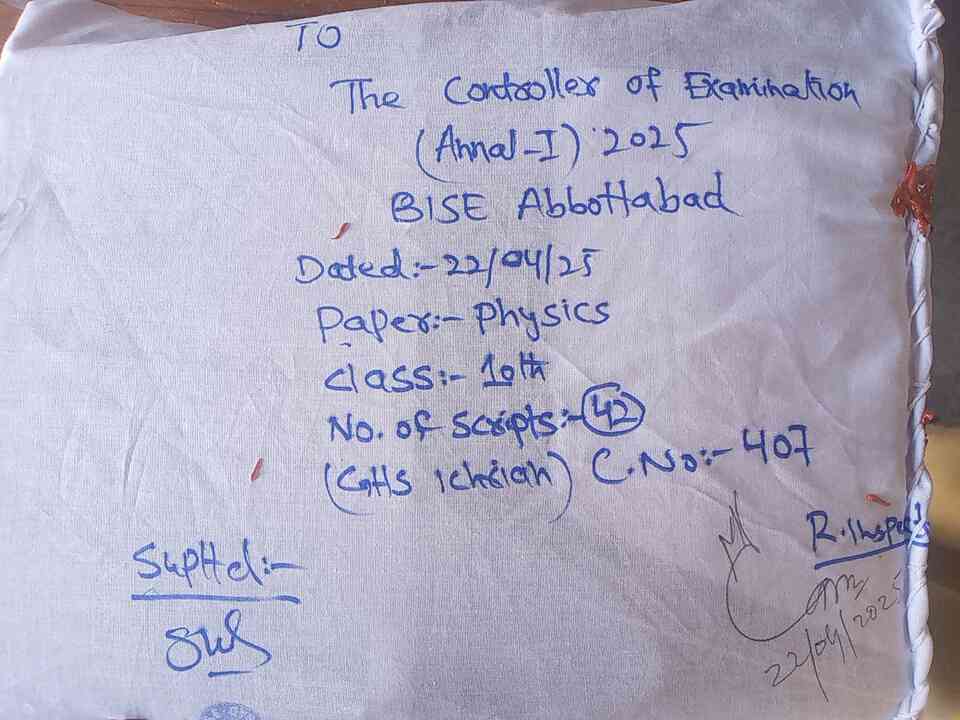 TO
The Controller of Examination
(Annal-I) 2025
BISE Abbottabad
Dated:- 22/04/25
Paper:- Physics
class:- 10th
No. of Scripts:- 42
(GHS Ichrian) C.No:- 407
R.Inspec
SupHd:-
22/04/2025